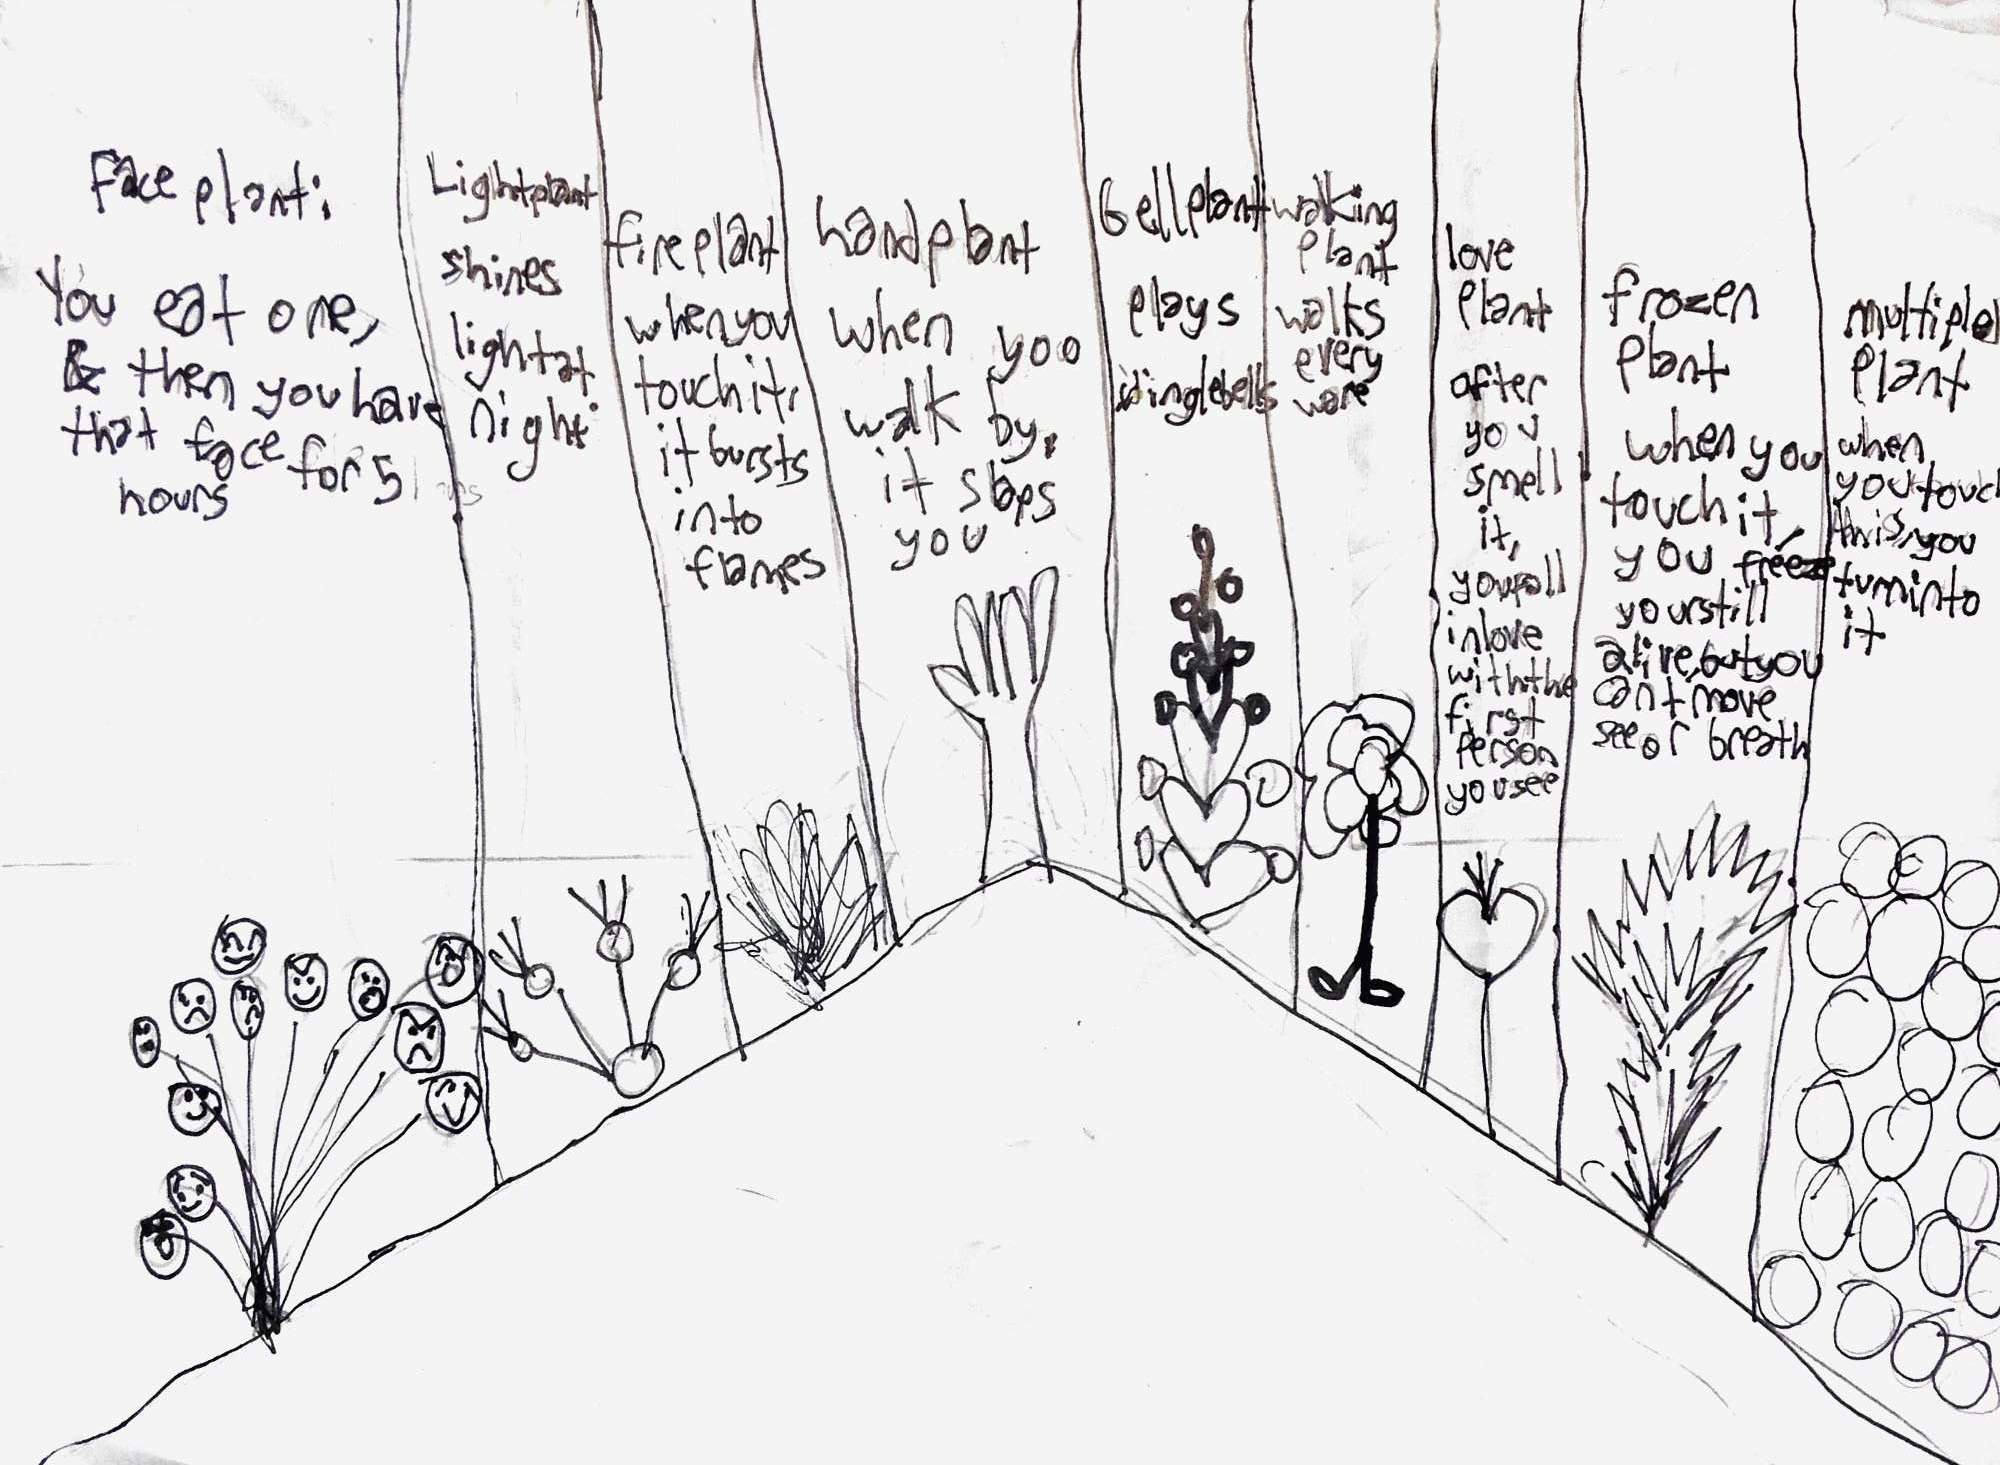 Face plant:
You eat one,
& then you have
that face for 5
hours
Lightplant
shines
light at
night
fire plant
when you
touch it,
it bursts
into
flames
handplant
when you
walk by,
it slaps
you
Bellplant
plays
jinglebells
walking
plant
walks
every
ware
love
plant
after
you
smell
it,
you fall
in love
with the
first
person
you see
frozen
plant
when you
touch it,
you freeze
your still
alive, but you
cant move
see or breath
multiple
plant
when
you touch
this, you
turn into
it